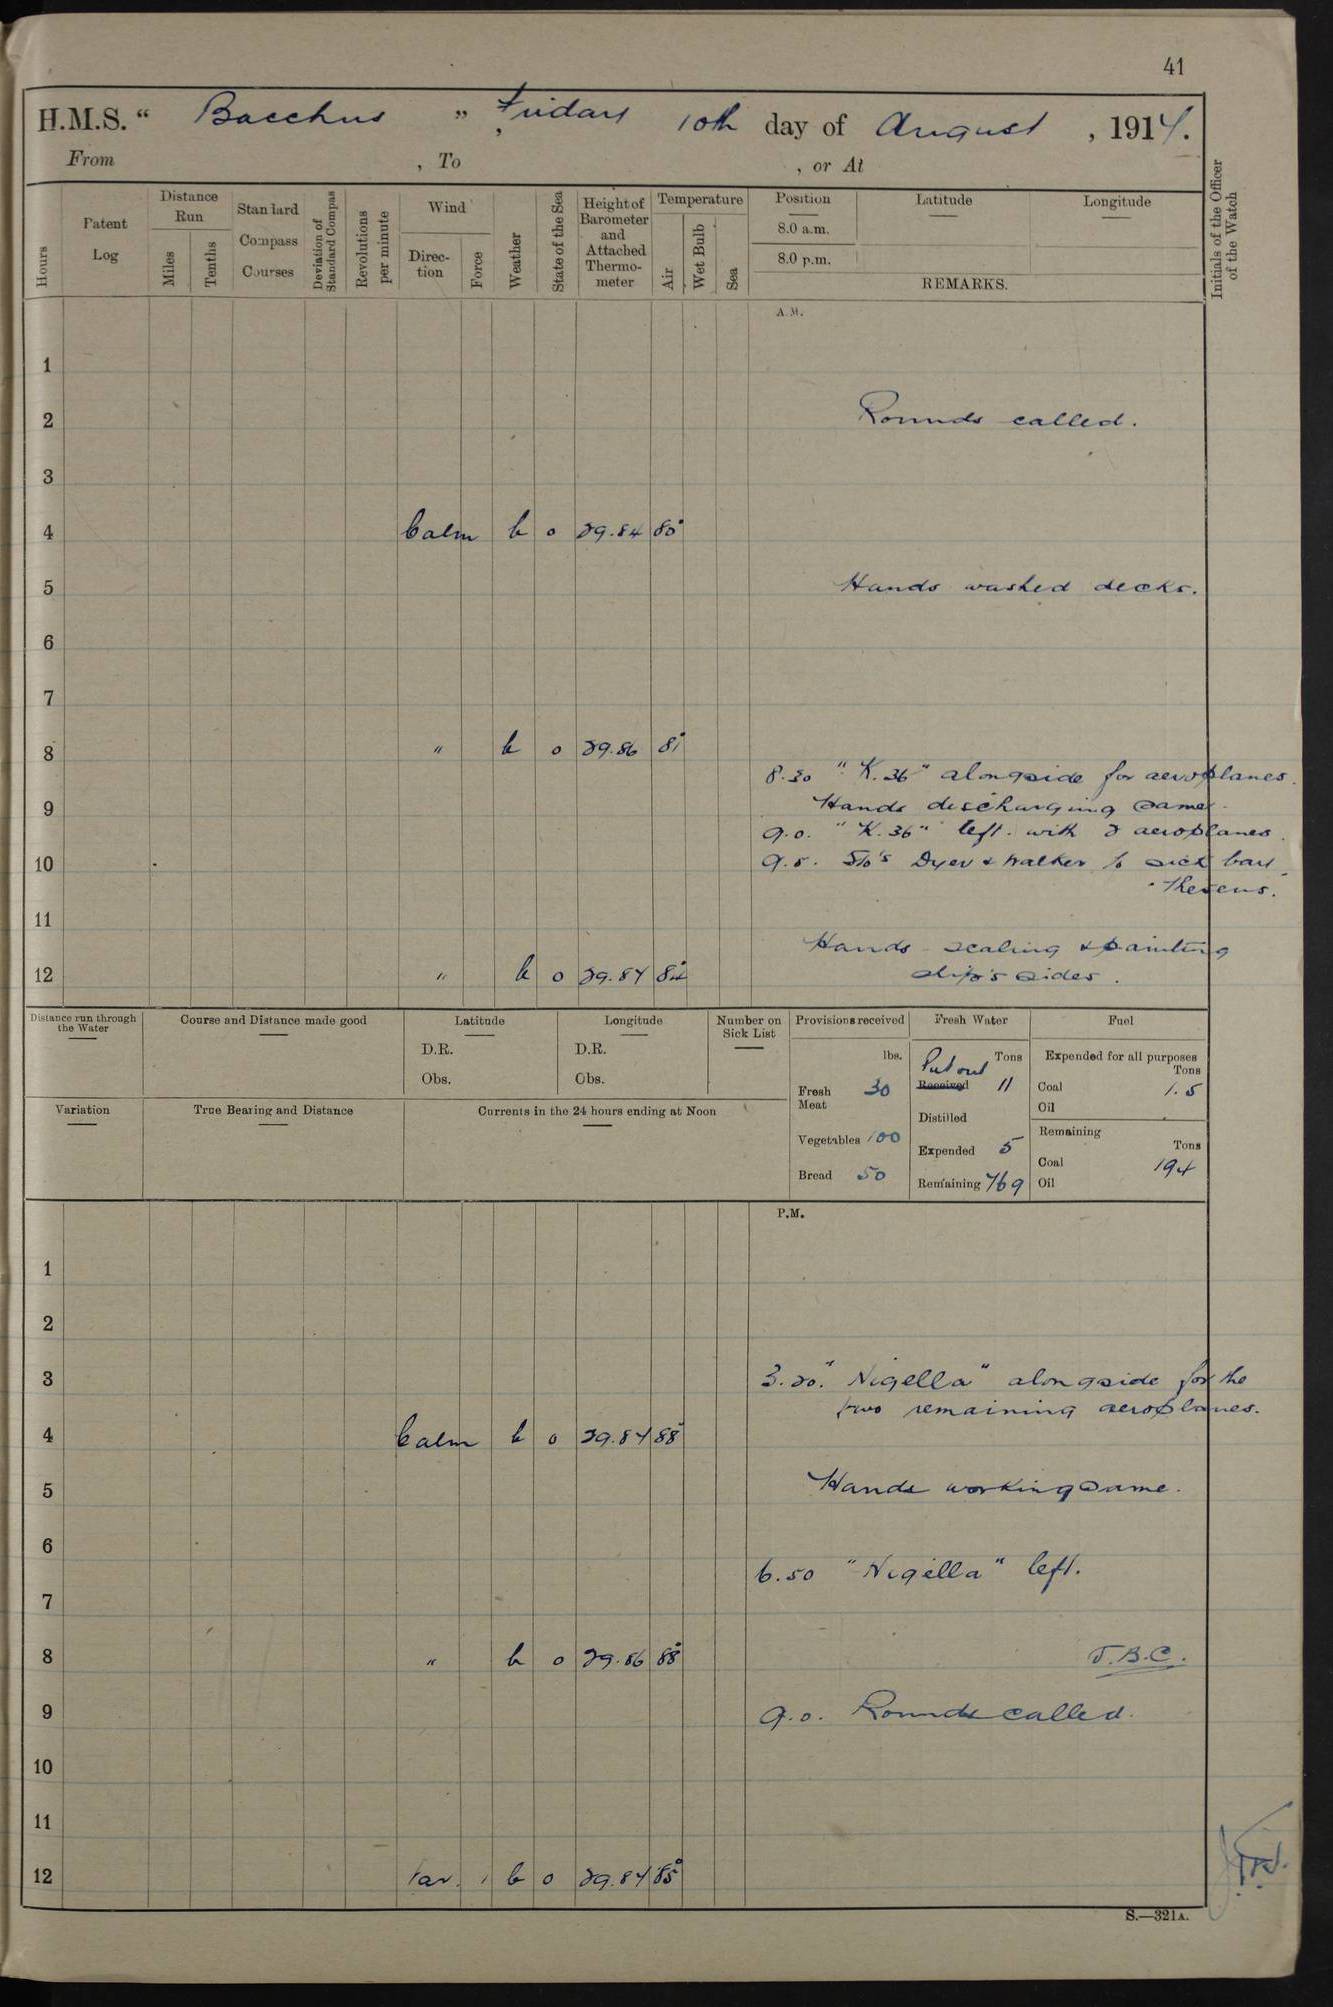 41
H.M.S. " Bacchus ", Friday 10th day of August, 1917.
From , To , or At
Hours
Patent Log
Distance Run
Miles
Tenths
Standard Compass Courses
Deviation of Standard Compass
Revolutions per minute
Wind
Direction
Force
Weather
State of the Sea
Height of Barometer and Attached Thermometer
Temperature
Air
Wet Bulb
Sea
Position
Latitude
Longitude
8.0 a.m.
8.0 p.m.
REMARKS.
Initials of the Officer of the Watch
A.M.
1
2 Rounds called.
3
4 Calm b 0 29.84 80°
5 Hands washed decks.
6
7
8 " b 0 29.86 81°
8.30 "K.36" alongside for aeroplanes.
9 Hands discharging same.
9.0. "K.36" left with 2 aeroplanes.
10 9.5. Sto's Dyer & Walker to sick bay
11
Hands scaling & painting
12 " b 0 29.87 ship's sides.
Distance run through the Water
Course and Distance made good
Latitude
D.R.
Obs.
Longitude
D.R.
Obs.
Number on Sick List
Provisions received
lbs.
Fresh Meat 30
Vegetables 100
Bread 50
Fresh Water
Tons
Put out
Received 11
Distilled
Expended 5
Remaining 769
Fuel
Expended for all purposes
Tons
Coal 1.5
Oil
Remaining
Tons
Coal 194
Oil
Variation
True Bearing and Distance
Currents in the 24 hours ending at Noon
P.M.
1
2
3 3.20. "Nigella" alongside for the
two remaining aeroplanes.
4 Calm b 0 29.87 88°
5 Hands working same.
6
6.50 "Nigella" left.
7
8 " b 0 29.86 88° J.B.C.
9 9.0. Rounds called.
10
11
12 Var. 1 b 0 29.87 85°
S.—321A.